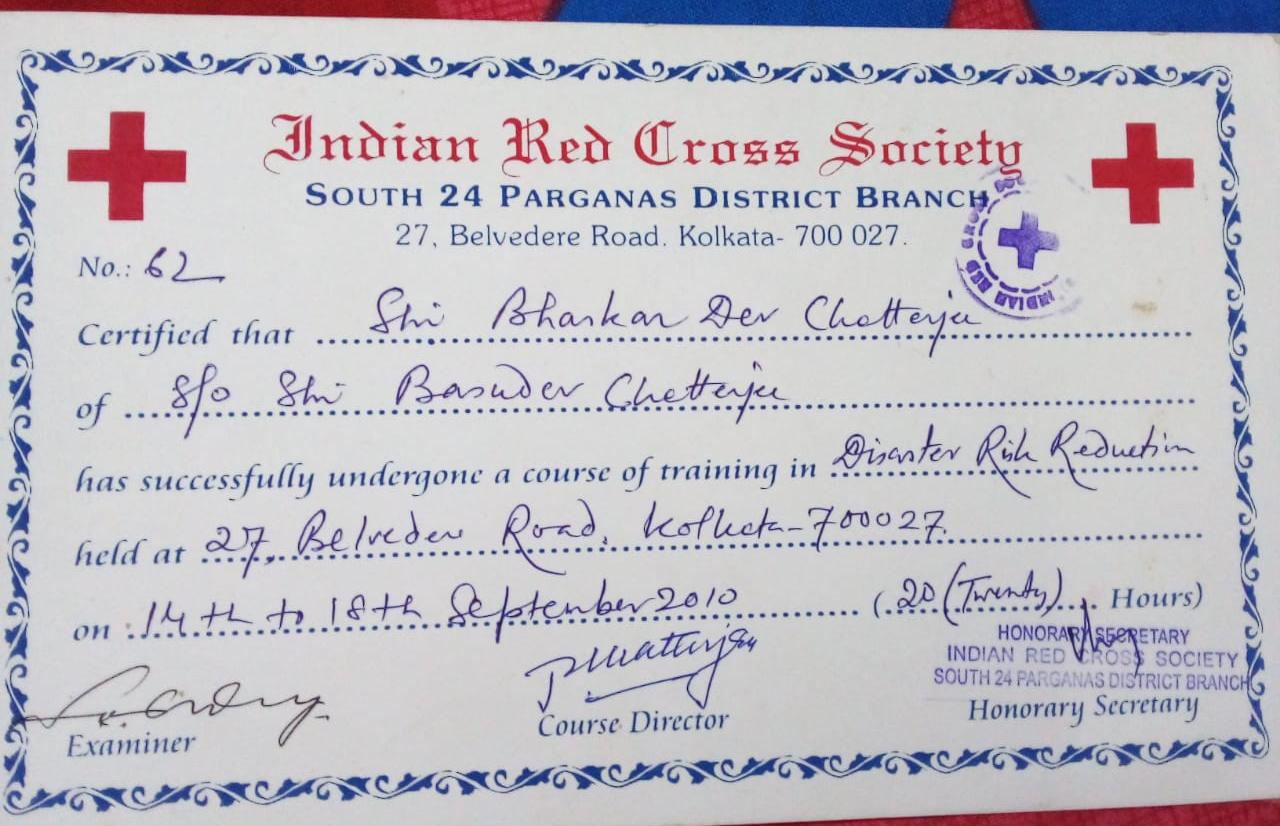 Indian Red Cross Society
SOUTH 24 PARGANAS DISTRICT BRANCH
27, Belvedere Road. Kolkata- 700 027.
INDIAN RED CROSS
No.: 62
Certified that Shri Bhaskar Dev Chatterjee
of S/o Shri Basudev Chatterjee
has successfully undergone a course of training in Disaster Risk Reduction
held at 27, Belvedere Road, Kolkata-700027.
on 14th to 18th September 2010 (20 (Twenty) Hours)
HONORARY SECRETARY
INDIAN RED CROSS SOCIETY
SOUTH 24 PARGANAS DISTRICT BRANCH
Examiner
Course Director
Honorary Secretary